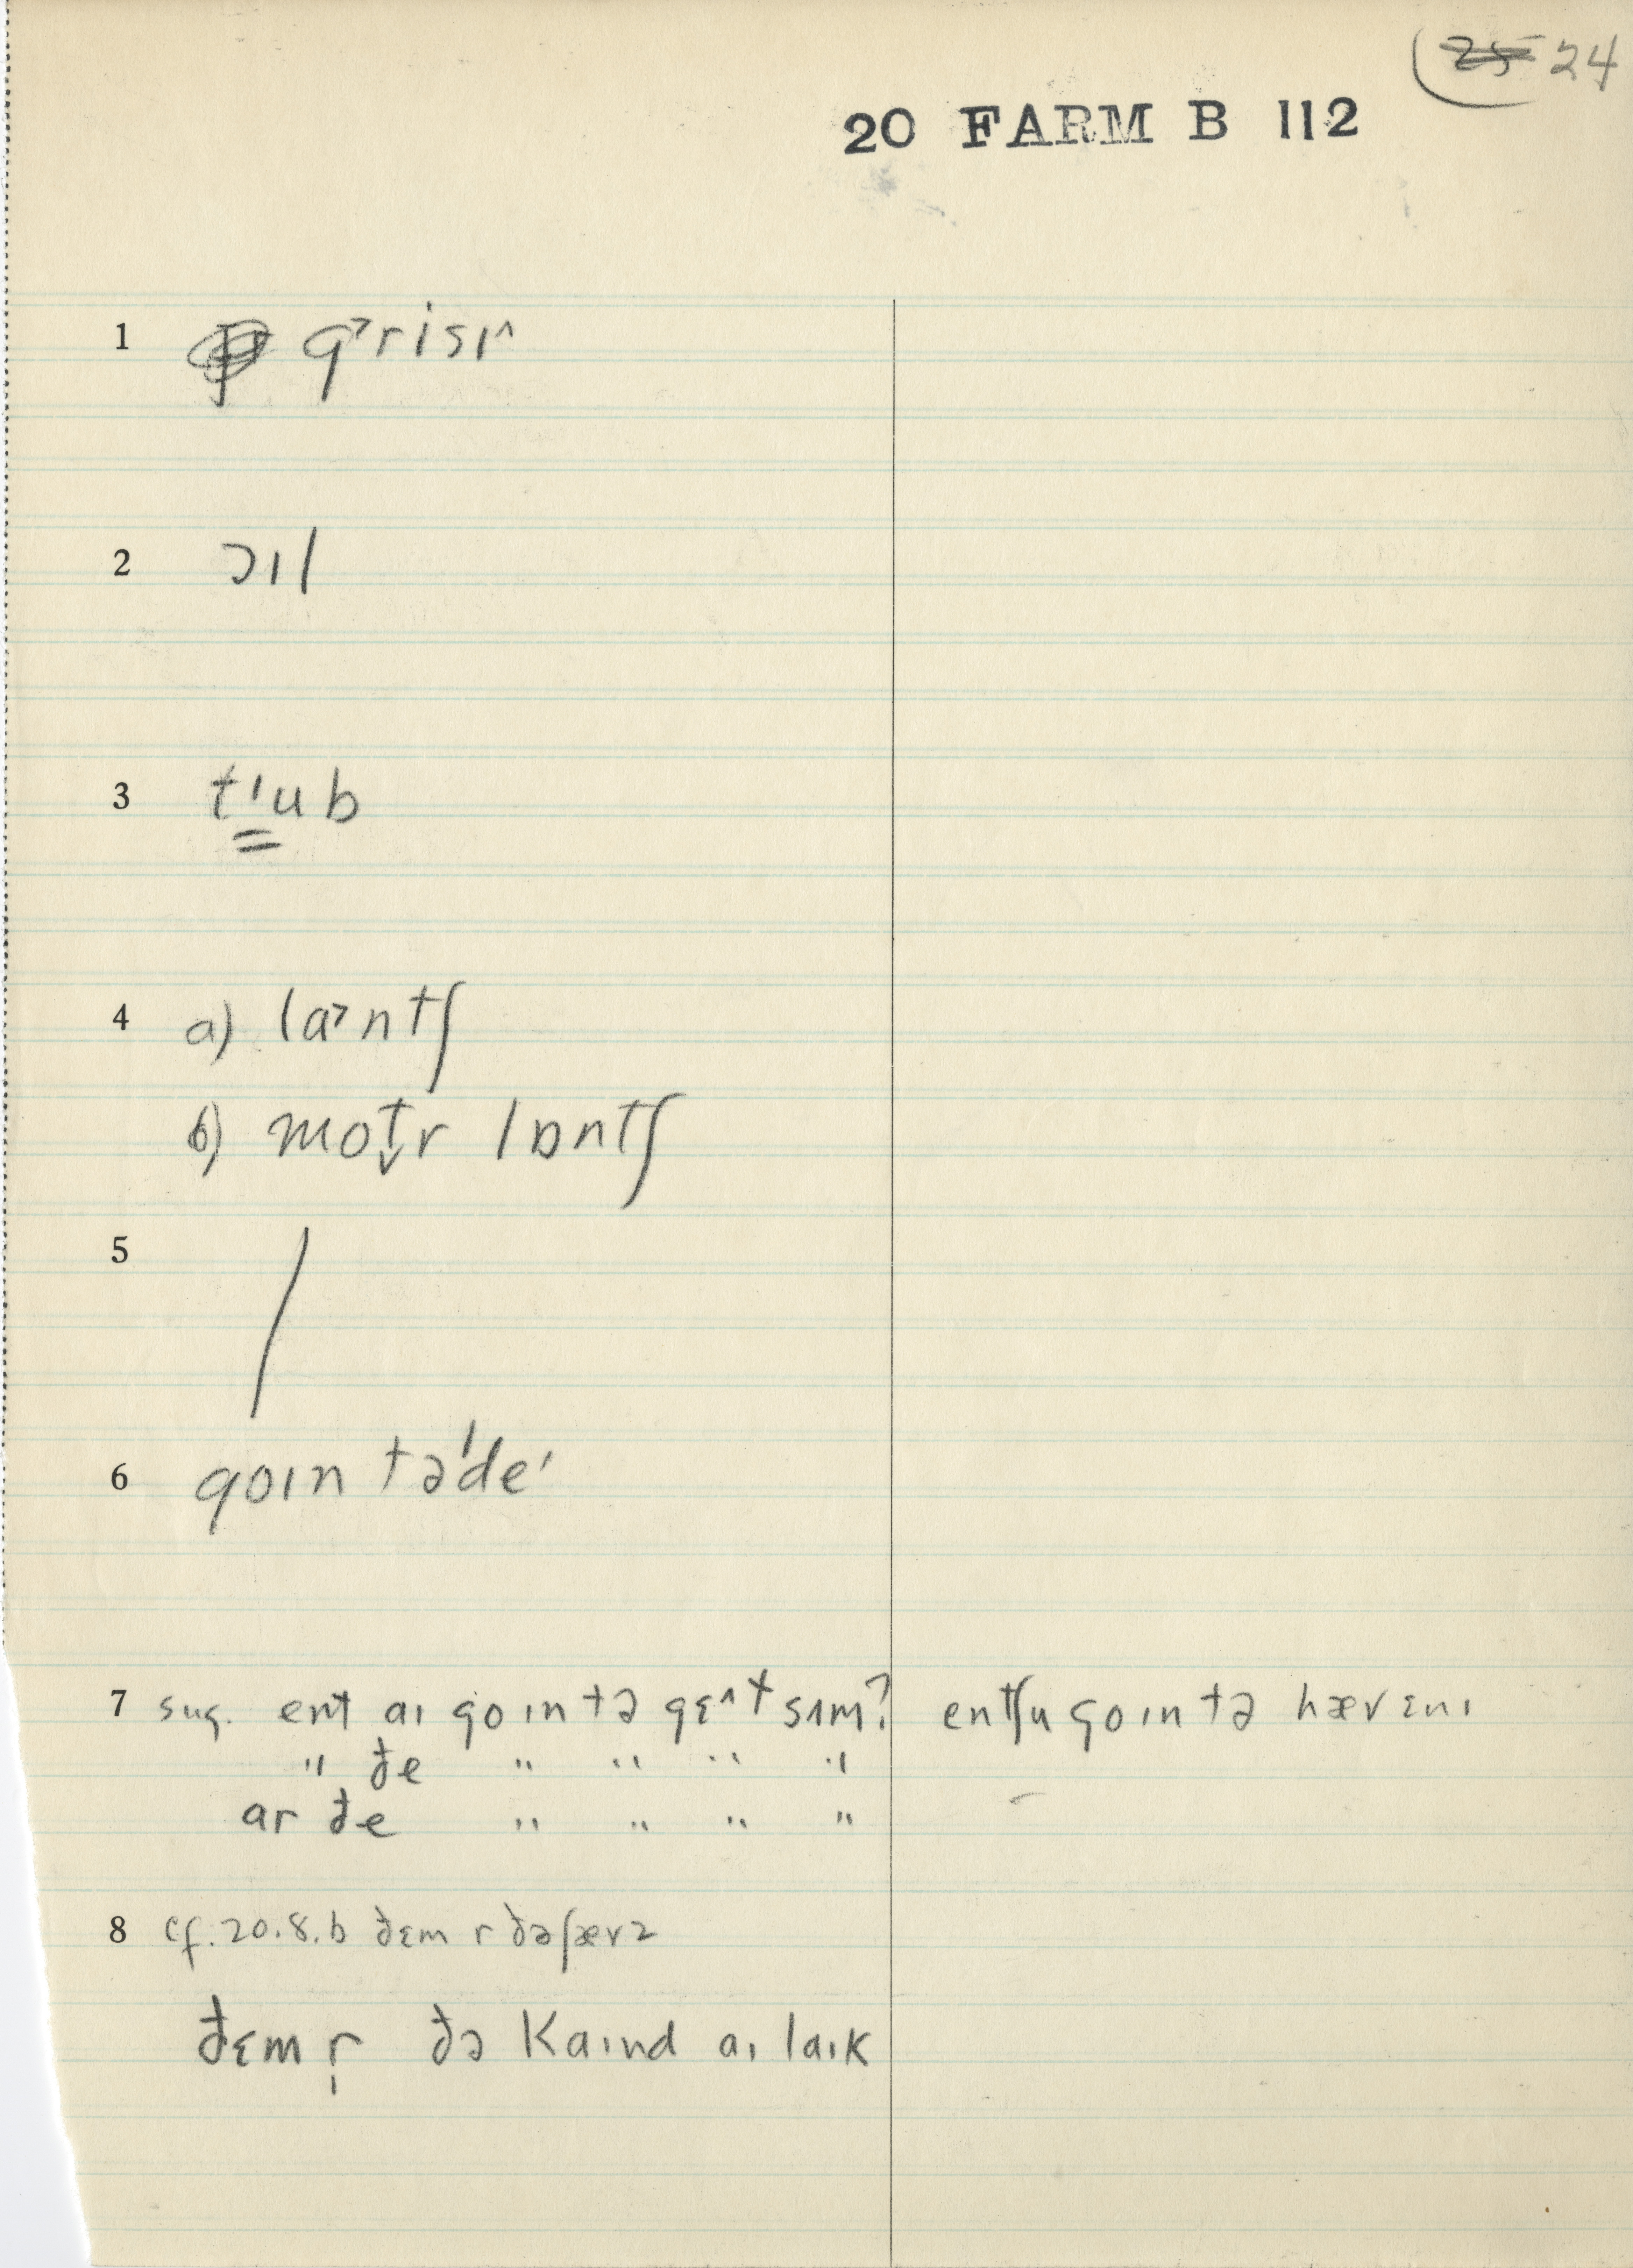 25 24
20 FARM B 112
1 g˃risɪ˄
2 ɔıl
3 tˈub
4 a) la˃ntʃ
b) mot̬r lɒntʃ
5 /
6 goın təˈdeˈ
7 sug. ent aı goın tə gɛ˄t sʌm? entʃu goın tə hæv ɛnı
" ðe " " " "
ar ðe " " " "
8 cf. 20.8.b ðɛm r ðəʃærz
ðɛm r̩ ðə kaınd aı laık